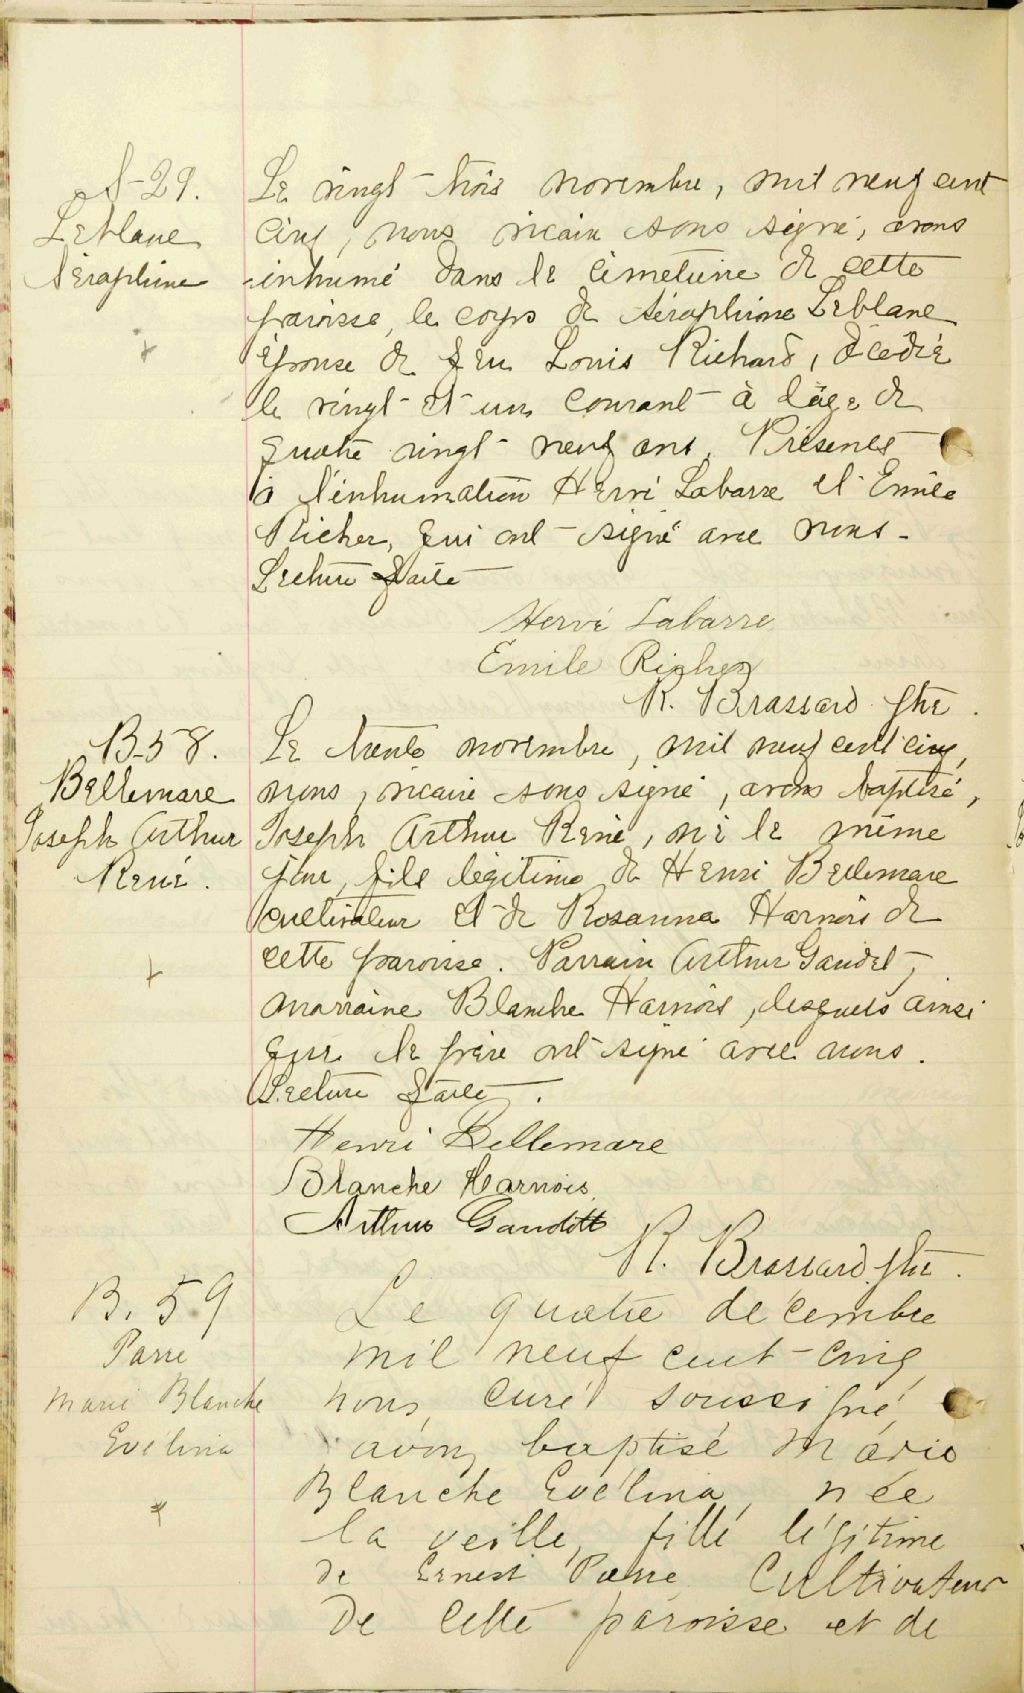 S-29.
Leblanc
Séraphine
Le vingt-trois novembre, mil neuf cent
cinq, nous vicaire sous signé, avons
inhumé dans le cimetière de cette
paroisse, le corps de Séraphine Leblanc
épouse de feu Louis Richard, décédée
le vingt-et-un courant à l'âge de
quatre vingt-neuf ans. Présents
à l'inhumation Hervé Labarre et Emile
Richer, qui ont signé avec nous.
Lecture faite
Hervé Labarre
Emile Richer
R. Brassard ptre.
B-58.
Bellemare
Joseph Arthur
René.
Le trente novembre, mil neuf cent cinq,
nous, vicaire sous signé, avons baptisé,
Joseph Arthur René, né le même
jour, fils légitime de Henri Bellemare
cultivateur et de Rosanna Harnois de
cette paroisse. Parrain Arthur Gaudet,
marraine Blanche Harnois, lesquels ainsi
que le père ont signé avec nous.
Lecture faite.
Henri Bellemare
Blanche Harnois
Arthur Gaudett
R. Brassard ptre.
B. 59
Parre
Marie Blanche
Evélina
Le quatre décembre
mil neuf cent-cinq,
nous, curé soussigné,
avons baptisé Marie
Blanche Evélina, née
la veille, fille légitime
de Ernest Parre, Cultivateur
De cette paroisse et de